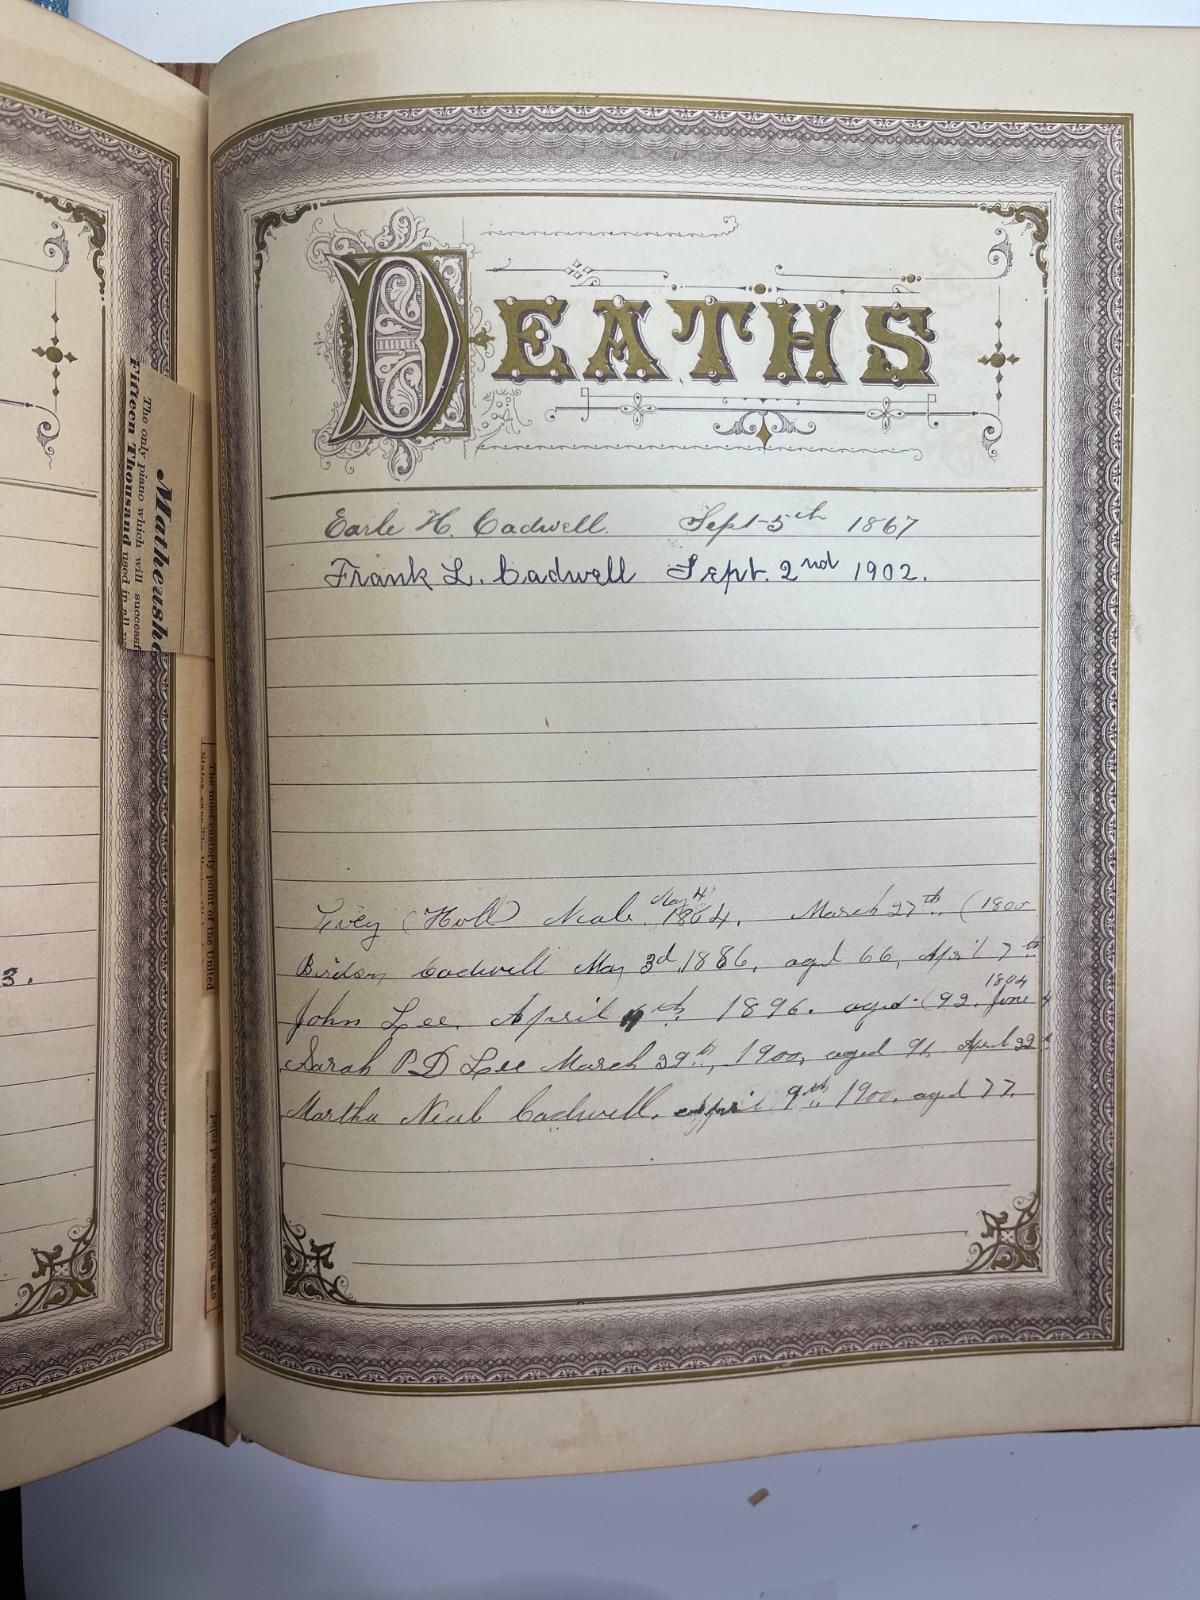 DEATHS
Earle H. Cadwell. Sept 5th 1867
Frank L. Cadwell Sept. 2nd 1902.
May 4
(Holl) Neale 1864. March 27th (1800
Cadwell May 3d, 1886, aged 66, April 7th
1804
John Lee. April 4th 1896. aged (92. June 4
Sarah P D Lee March 29th, 1900, aged 91, April 22d
Martha Neal Cadwell. April 9th, 1900, aged 77.
3.
Mathushe
The only piano which will successf
Fifteen Thousand used in all
The most easterly point of the United
with a quick sense of relief